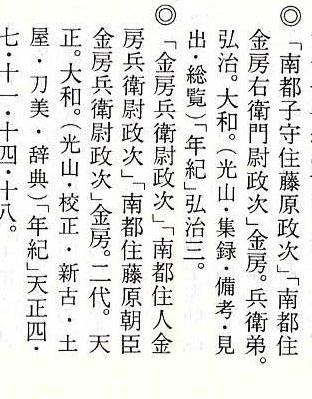 ◎「南都子守住藤原政次」「南都住
金房右衛門尉政次」金房。兵衛弟。
弘治。大和。(光山・集録・備考・見
出・総覧)「年紀」弘治三。
◎「金房兵衛尉政次」「南都住人金
房兵衛尉政次」「南都住藤原朝臣
金房兵衛尉政次」金房。二代。天
正。大和。(光山・校正・新古・土
屋・刀美・辞典)「年紀」天正四・
七・十一・十四・十八。